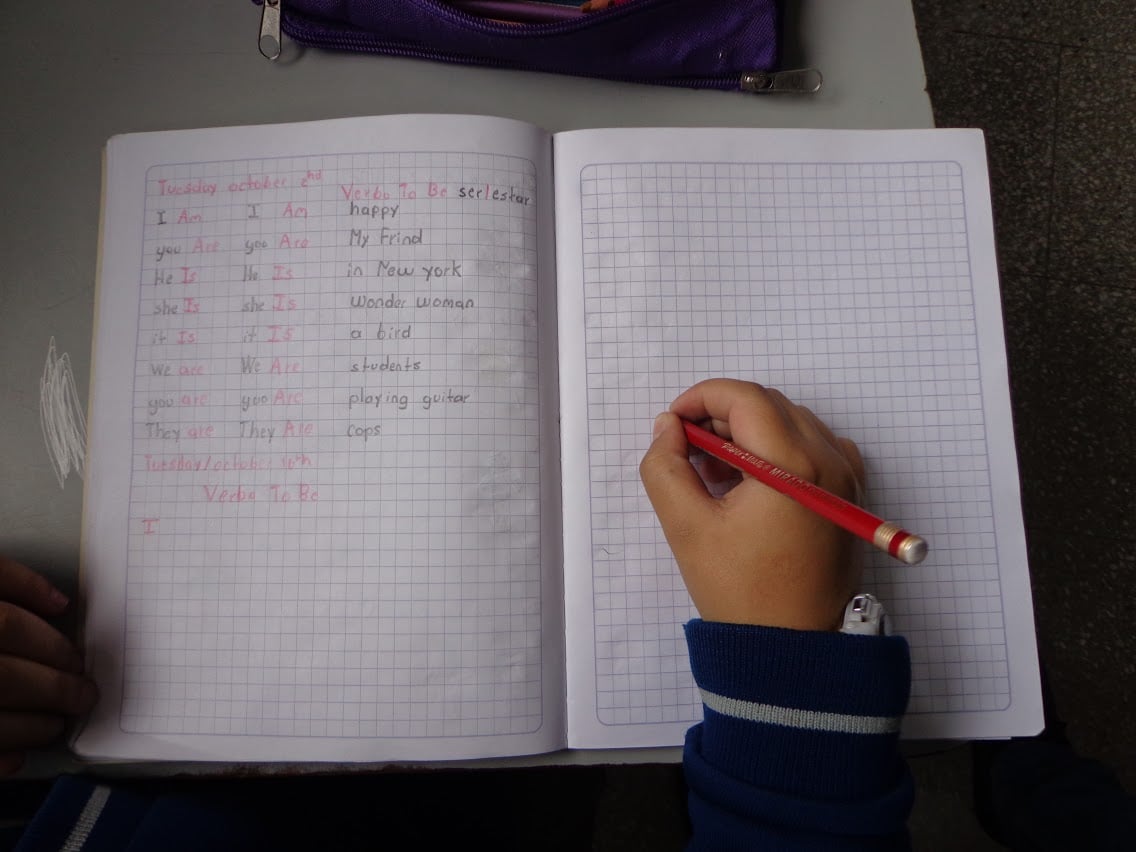 Tuesday october 2nd Verbo To Be ser/estar
I Am I Am happy
you Are you Are My Frind
He Is He Is in New york
she Is she Is Wonder woman
it Is it Is a bird
We are We Are students
you are you Are playing guitar
They are They Are cops
Tuesday/october 10th
Verbo To Be
I